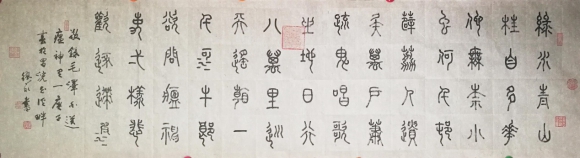 綠水青山
枉自多華
佗無奈小
虫何千邨
薜荔人遺
矢萬戶蕭
疏鬼唱歌
坐地日行
八萬里巡
天遙看一
千河牛郎
欲問瘟神
事一樣悲
歡逐逝波
敬錄毛澤東送
瘟神 一 庚子